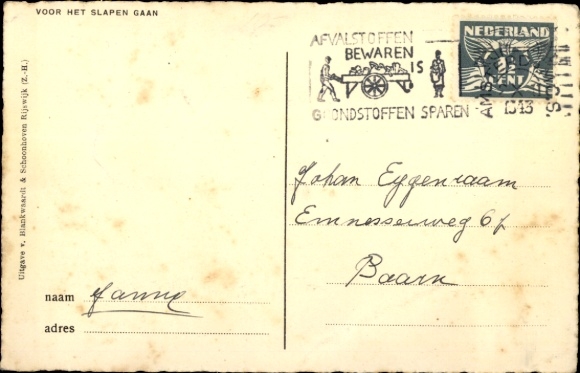 VOOR HET SLAPEN GAAN
AFVALSTOFFEN
BEWAREN
IS
GRONDSTOFFEN SPAREN
NEDERLAND
CENT
1943
Johan Eggenraam
Emnesserweg 61
Baarn
naam Janne
adres
Uitgave v. Blankwaardt & Schoonhoven Rijswijk (Z.-H.)